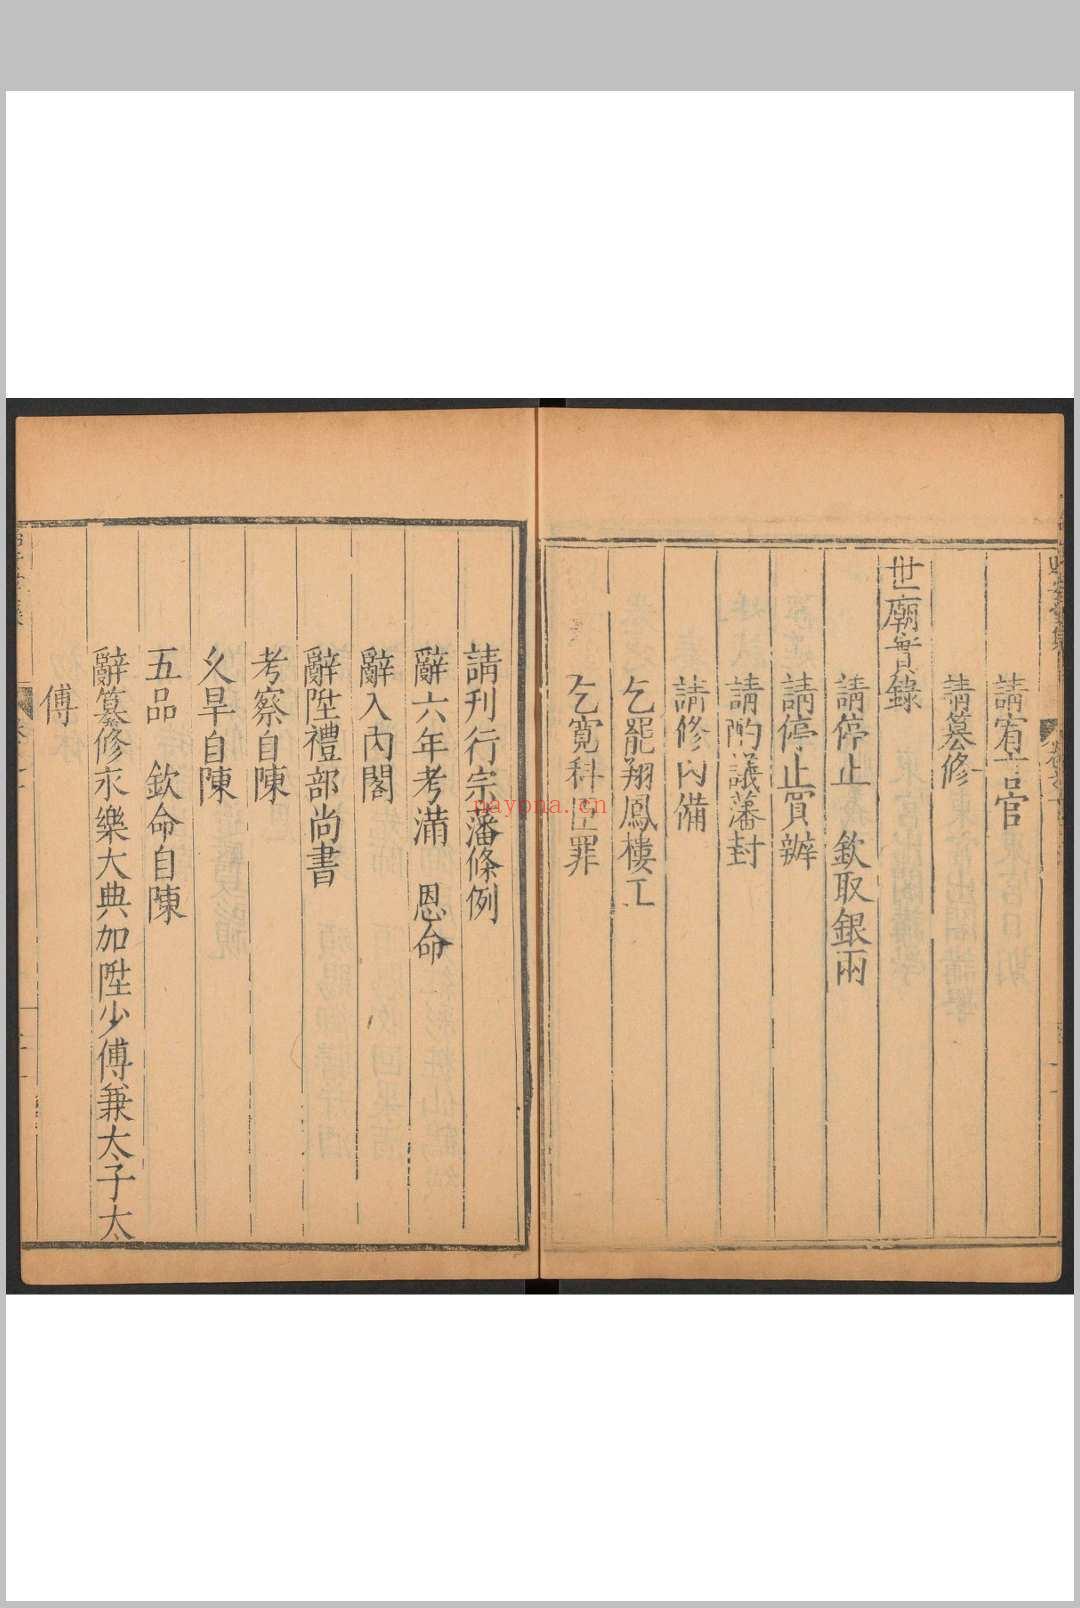 請宥言官
請纂修
世廟實錄
請停止 欽取銀兩
請停止買辦
請酌議藩封
請修內備
乞罷翔鳳樓工
乞寬科臣罪
請刊行宗藩條例
辭六年考滿 恩命
辭入內閣
辭陞禮部尚書
考察自陳
久旱自陳
五品 欽命自陳
辭纂修永樂大典加陞少傅兼太子太
傅
nayona.cn